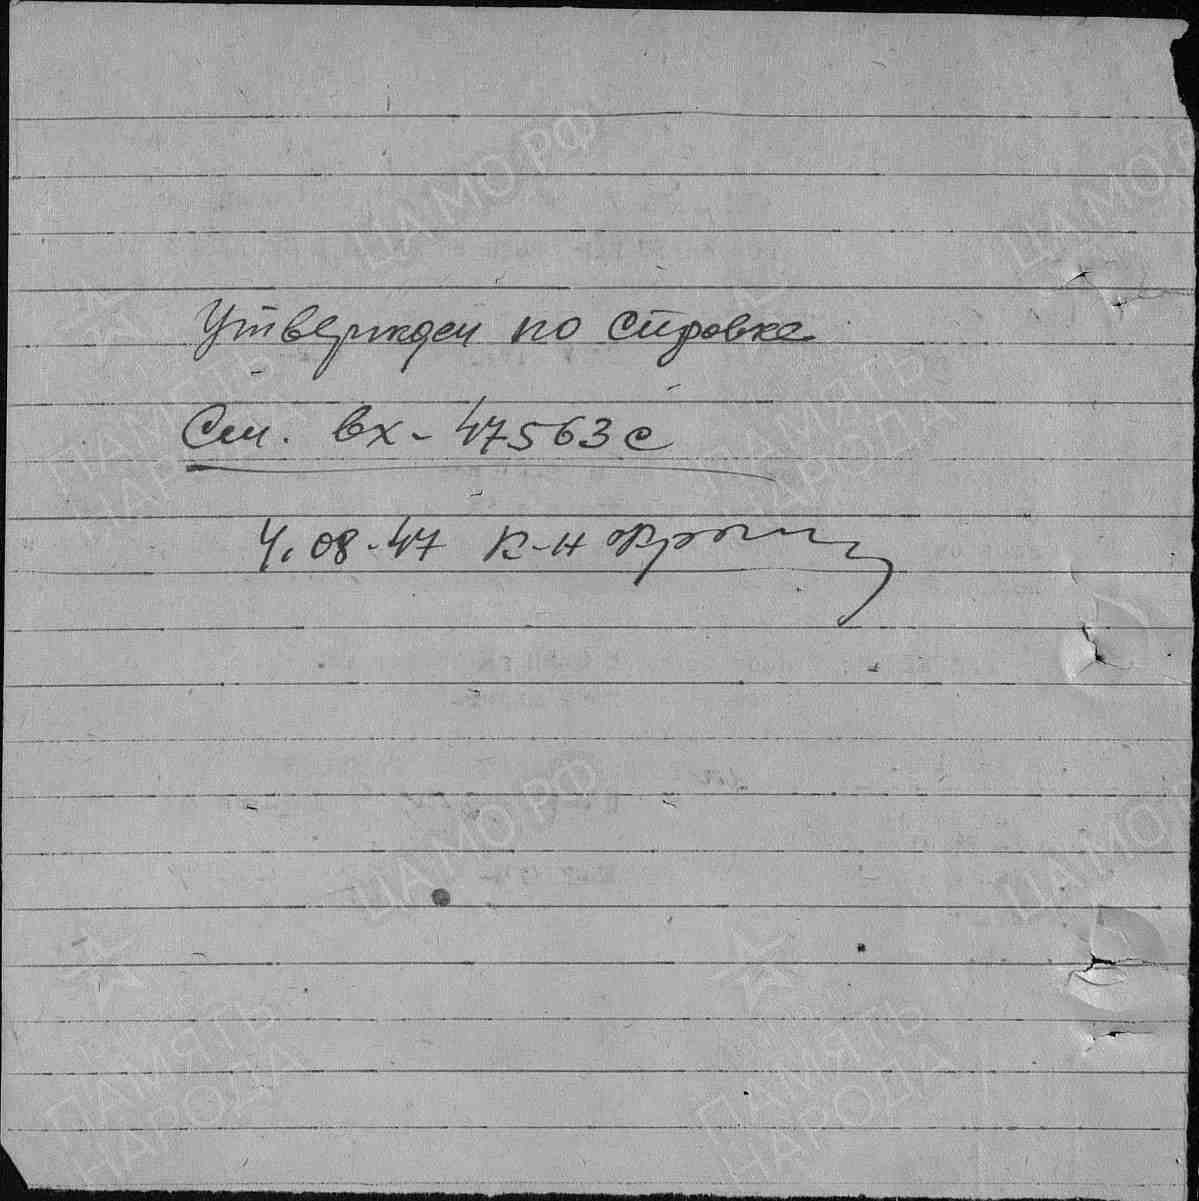 Утвержден по справке
См. вх-47563с
4.08.47 к-н
ЦАМО.РФ
ЦАМО.Р
ПАМЯТЬ
НАРОДА
ПАМЯТЬ
НАРОДА
ЦАМО.РФ
ЦАМО.Р
ПАМЯТЬ
НАРОДА
ПАМЯТЬ
НАРОДА